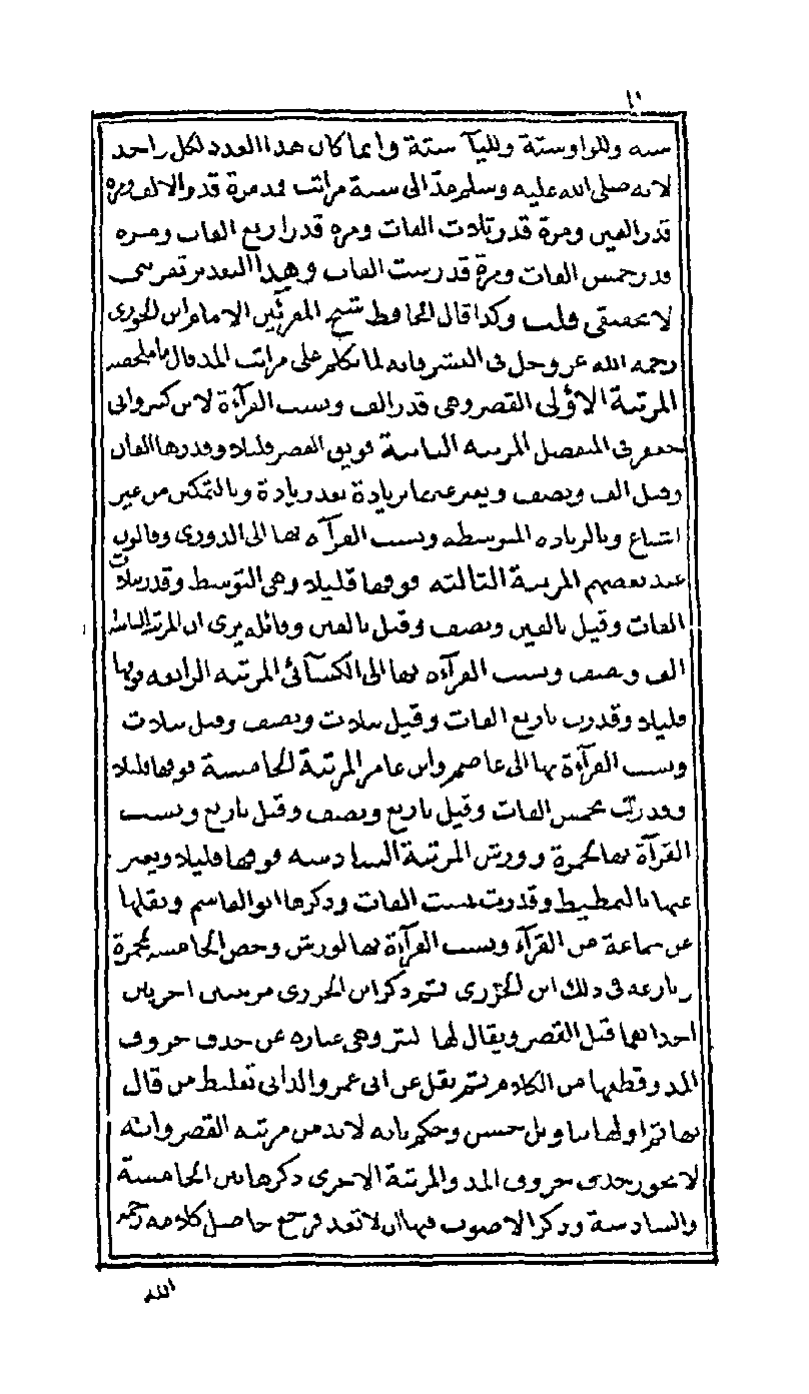 ستة وللواو ستة ولليآ ستة وانما كان هذا العدد لكل واحد
لانه صلى الله عليه وسلم مدّ الى ستة مراتب فمد مرة قدر الالف ومرة
قدر الفين ومرة قدر ثلاث الفات ومرة قدر اربع الفات ومرة
قدر خمس الفات ومرة قدر ست الفات وهذا التقدير تقريبى
لا تحقيقى قلت وكذا قال الحافظ شيخ المقرئين الامام ابن الجزرى
رحمه الله عز وجل فى النشر فانه لما تكلم على مراتب المد قال ما ملخصه
المرتبة الاؤلى القصر وهى قدر الف ونسب القرآءة لابن كثير وابى
جعفر فى المنفصل المرتبة الثانية فويق القصر قليلا وقدرها الفان
وقيل الف ونصف ويعبر عنها بزيادة بعد زيادة وبالتمكين من غير
اشباع وبالزيادة المتوسطة ونسب القرآءة بها الى الدورى وقالون
عند بعضهم المرتبة الثالثة فوقها قليلا وهى التوسط وقدر بثلاث
الفات وقيل بالفين ونصف وقيل بالفين وقائله يرى ان المرتبة الثانية
الف ونصف ونسب القرآءة بها الى الكسآئى المرتبة الرابعة فوقها
قليلا وقدرت باربع الفات وقيل بثلاث ونصف وقيل بثلاث
ونسب القرآءة بها الى عاصم وابن عامر المرتبة الخامسة فوقها قليلا
وقدرت بخمس الفات وقيل باربع ونصف وقيل باربع ونسب
القرآة بها لحمزة وورش المرتبة السادسة فوقها قليلا ويعبر
عنها بالتمطيط وقدرت بست الفات وذكرها ابو القاسم ونقلها
عن جماعة من القرآء ونسب القرآءة بها لورش وخص الخامسة بحمزة
ونازعه فى ذلك ابن الجزرى ثم ذكر ابن الجزرى مرتبتين اخريين
احداهما قبل القصر ويقال لها البتر وهى عبارة عن حذف حروف
المد وقطعها من الكلام ثم نقل عن ابى عمرو الدانى تغليط من قال
بها ثم اولها تاويل حسن وحكم بانه لا بد من مرتبة القصر وانه
لا يجوز حذف حروف المد والمرتبة الاخرى ذكرها بين الخامسة
والسادسة وذكر الاصوب فيها ان لا تعد فرجع حاصل كلامه رحمه
الله